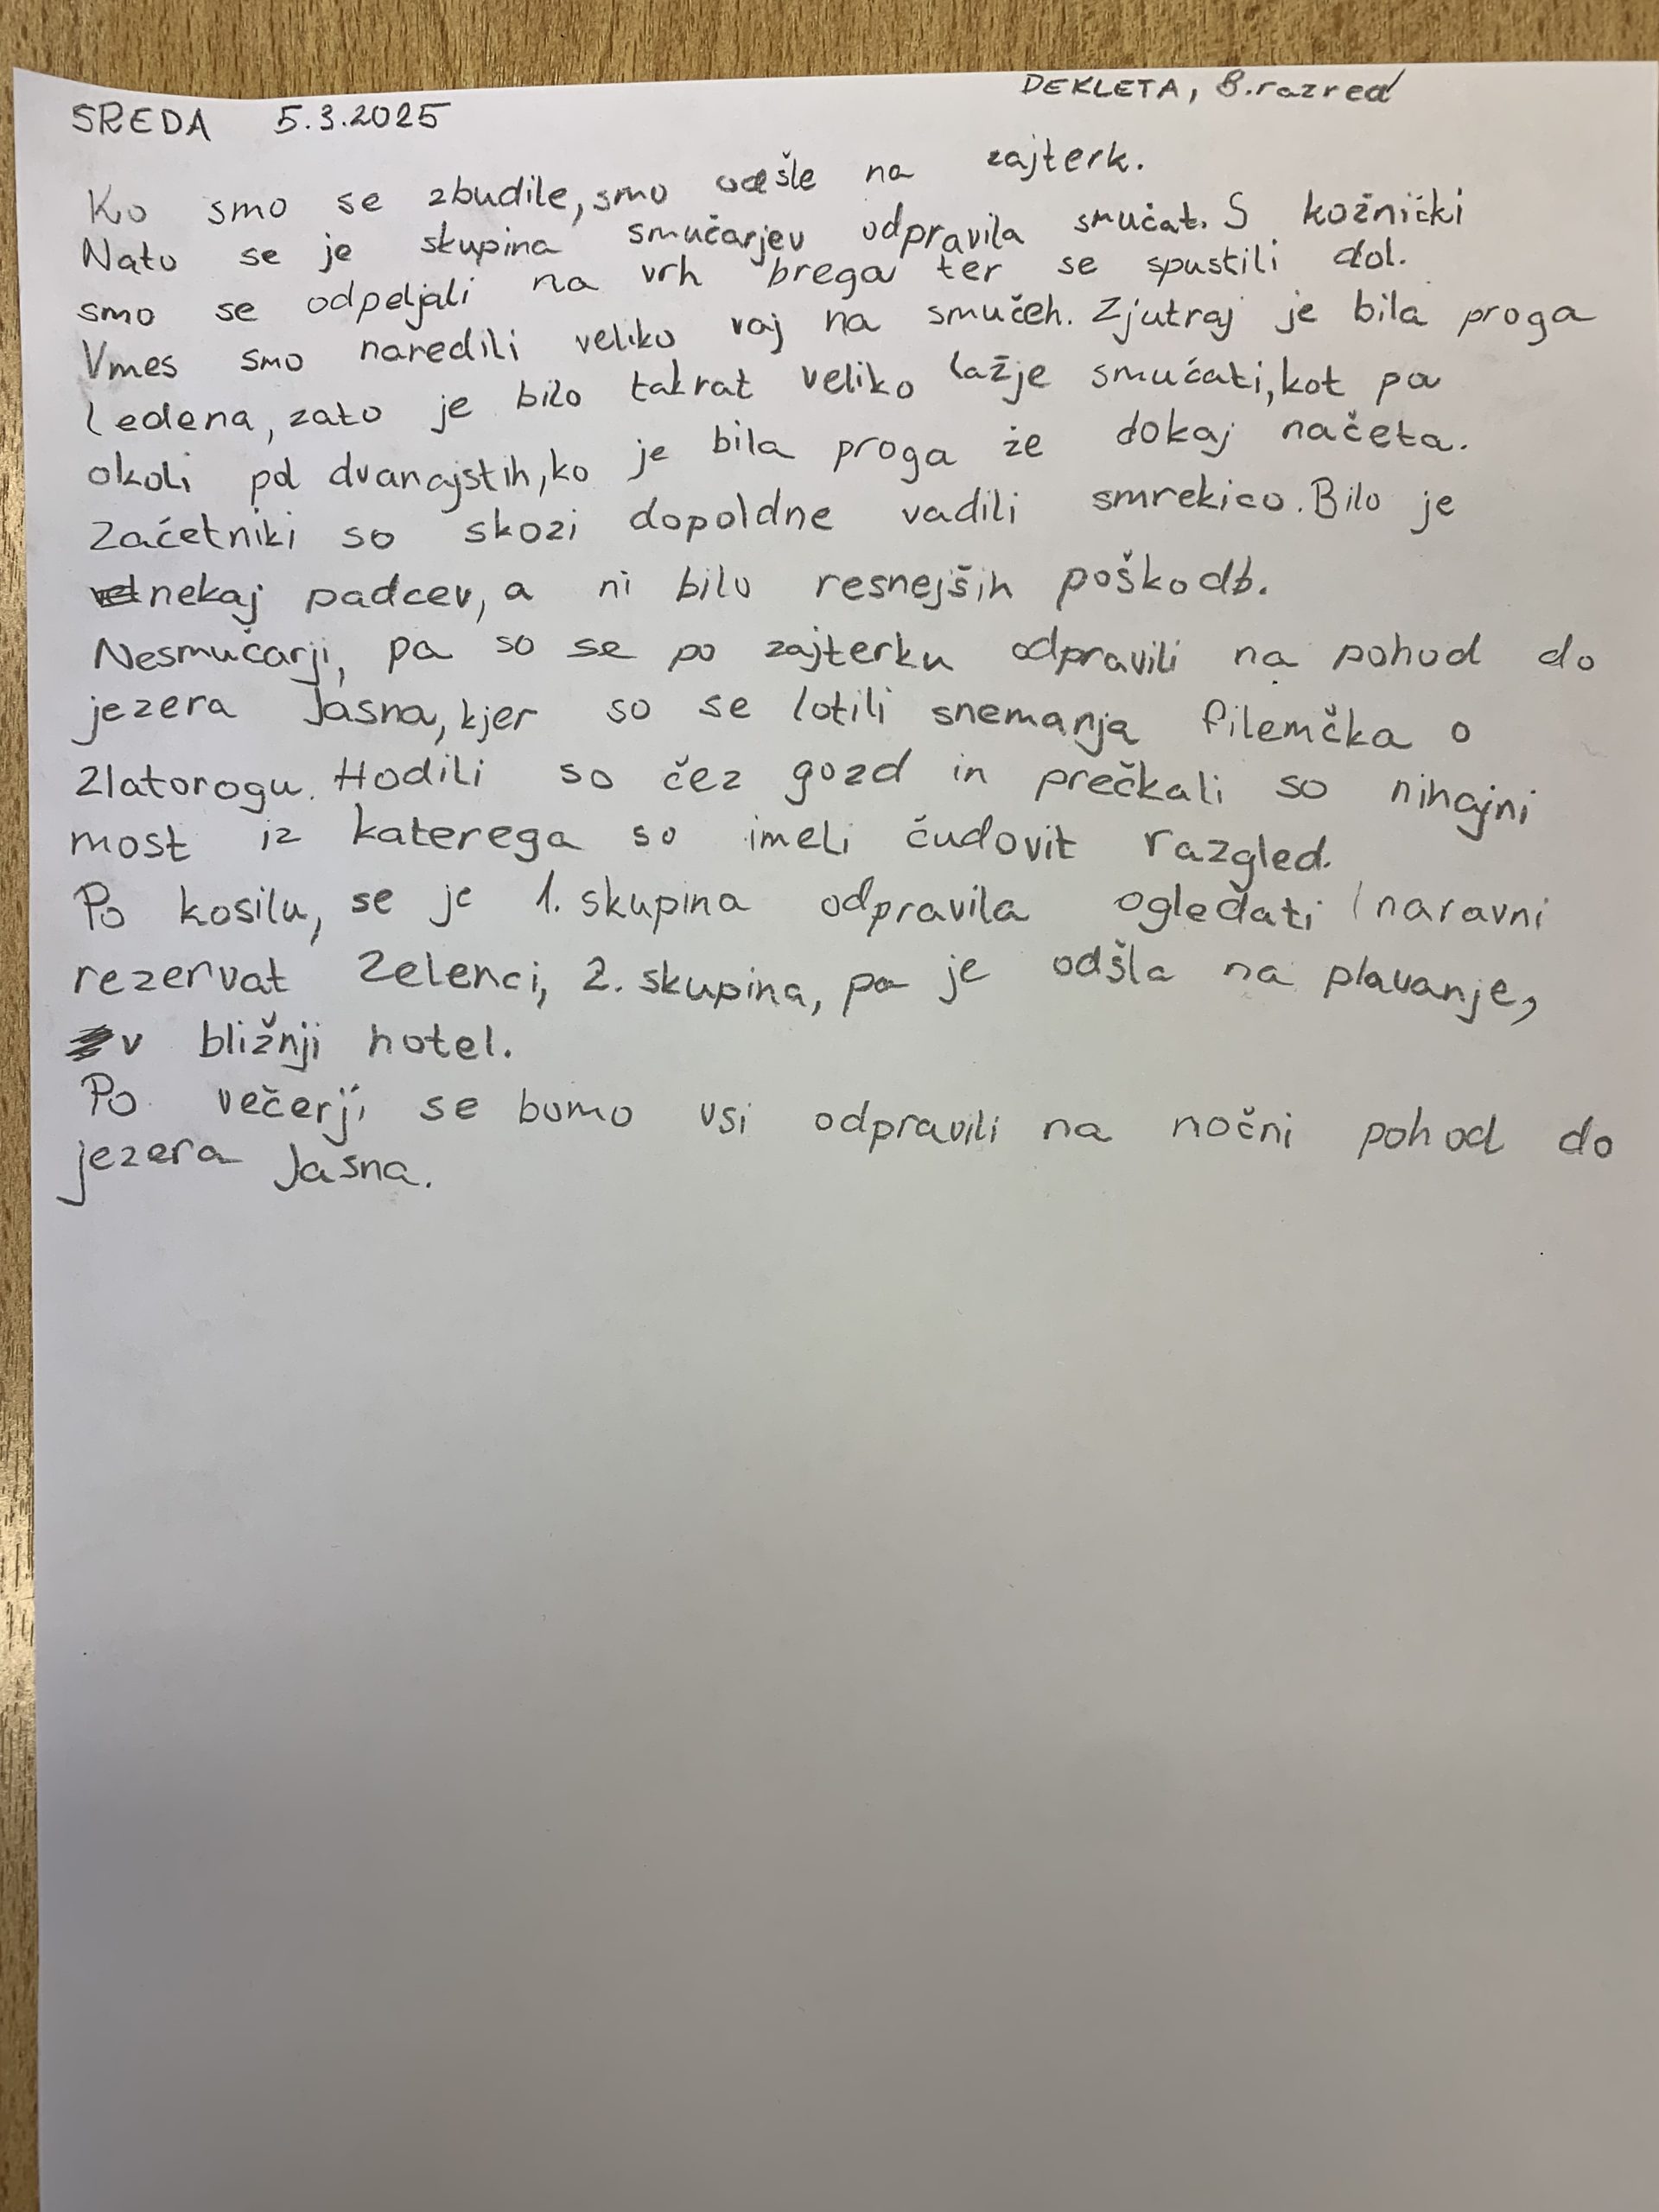 DEKLETA, 8.razred
SREDA 5.3.2025
Ko smo se zbudile, smo odšle na zajterk.
Nato se je skupina smučarjev odpravila smučat. S kožnički
smo se odpeljali na vrh brega ter se spustili dol.
Vmes smo naredili veliko vaj na smučeh. Zjutraj je bila proga
ledena, zato je bilo takrat veliko lažje smučati, kot pa
okoli pol dvanajstih, ko je bila proga že dokaj načeta.
Začetniki so skozi dopoldne vadili smrekico. Bilo je
nekaj padcev, a ni bilo resnejših poškodb.
Nesmučarji, pa so se po zajterku odpravili na pohod do
jezera Jasna, kjer so se lotili snemanja filemčka o
Zlatorogu. Hodili so čez gozd in prečkali so nihajni
most iz katerega so imeli čudovit razgled.
Po kosilu, se je 1. skupina odpravila ogledati naravni
rezervat Zelenci, 2. skupina, pa je odšla na plavanje,
v bližnji hotel.
Po večerji se bomo vsi odpravili na nočni pohod do
jezera Jasna.